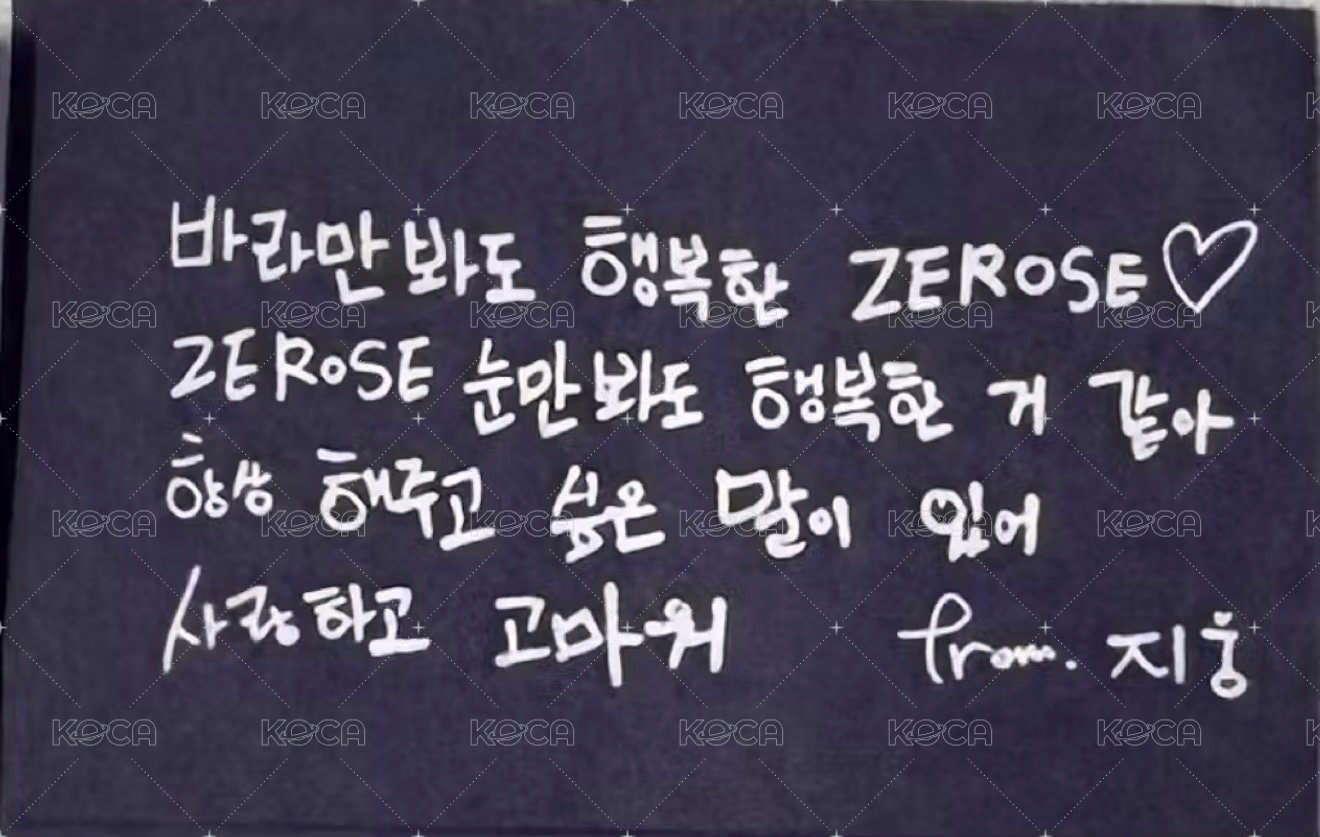 바라만 봐도 행복한 ZEROSE♡
ZEROSE 눈만 봐도 행복한 거 같아
항상 해주고 싶은 말이 있어
사랑하고 고마워 from. 지웅
KOCA KOCA KOCA KOCA KOCA KOCA
KOCA KOCA KOCA KOCA KOCA KOCA
KOCA KOCA KOCA KOCA KOCA KOCA
KOCA KOCA KOCA KOCA KOCA KOCA